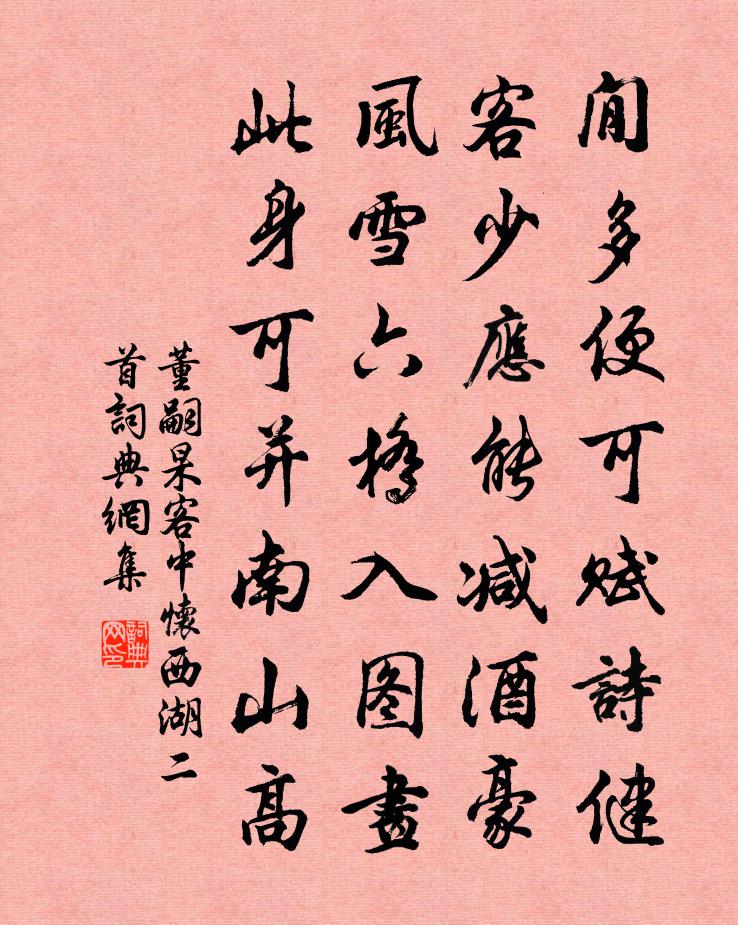 閒多便可賦詩健
客少應能減酒豪
風雪六橋入图畫
此身可并南山高
董嗣杲客中懷西湖二
首詞典網集
詞典
网印